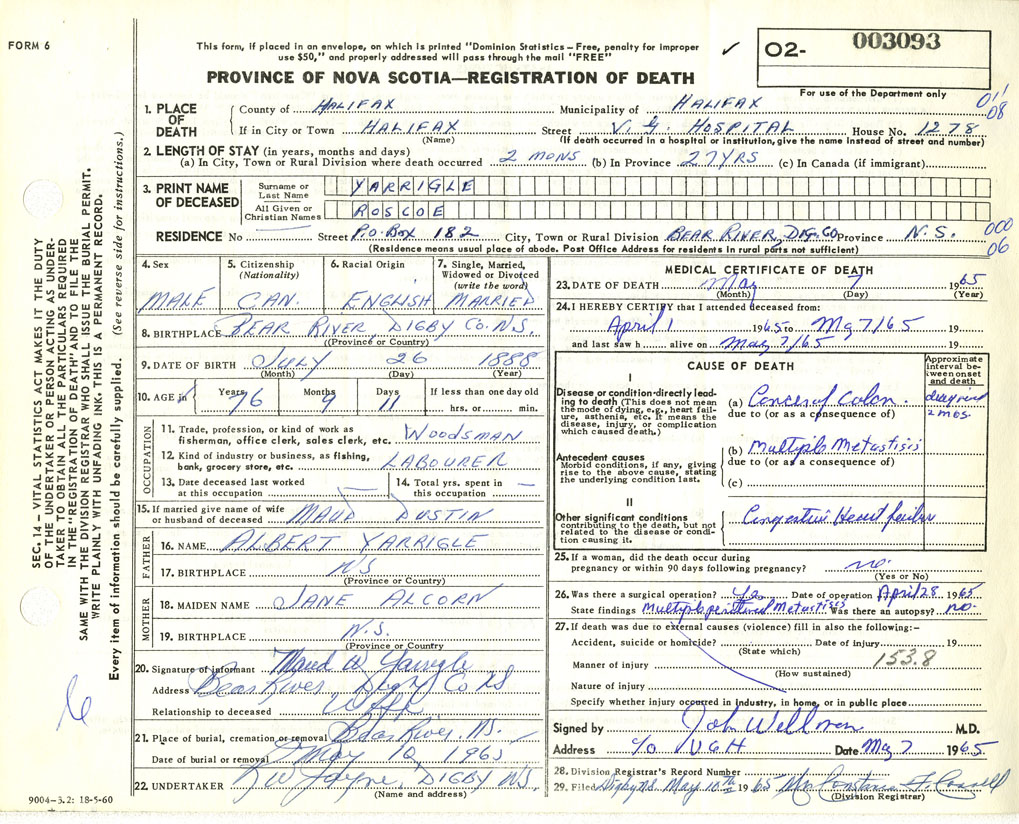 FORM 6
This form, if placed in an envelope, on which is printed "Dominion Statistics – Free, penalty for improper
use $50," and properly addressed will pass through the mail "FREE"
✓
O2- 003093
For use of the Department only
PROVINCE OF NOVA SCOTIA—REGISTRATION OF DEATH
01'
08
1. PLACE OF DEATH
County of HALIFAX Municipality of HALIFAX
If in City or Town HALIFAX Street V. G. HOSPITAL House No. 1278
(Name) (If death occurred in a hospital or institution, give the name instead of street and number)
2. LENGTH OF STAY (in years, months and days)
(a) In City, Town or Rural Division where death occurred 2 MONS (b) In Province 27 YRS (c) In Canada (if immigrant)
3. PRINT NAME OF DECEASED
Surname or Last Name YARRIGLE
All Given or Christian Names ROSCOE
RESIDENCE No Street P.O. BOX 182 City, Town or Rural Division BEAR RIVER, DIG. CO. Province N.S.
000
06
(Residence means usual place of abode. Post Office Address for residents in rural parts not sufficient)
4. Sex MALE
5. Citizenship (Nationality) CAN.
6. Racial Origin ENGLISH
7. Single, Married, Widowed or Divorced (write the word) MARRIED
8. BIRTHPLACE BEAR RIVER, DIGBY CO. N.S.
(Province or Country)
9. DATE OF BIRTH JULY 26 1888
(Month) (Day) (Year)
10. AGE in Years 76 Months 9 Days 11 If less than one day old
hrs. or min.
OCCUPATION
11. Trade, profession, or kind of work as
fisherman, office clerk, sales clerk, etc. WOODSMAN
12. Kind of industry or business, as fishing,
bank, grocery store, etc. LABOURER
13. Date deceased last worked
at this occupation —
14. Total yrs. spent in
this occupation —
15. If married give name of wife
or husband of deceased MAUD DUSTIN
FATHER
16. NAME ALBERT YARRIGLE
17. BIRTHPLACE N.S
(Province or Country)
MOTHER
18. MAIDEN NAME JANE ALCORN
19. BIRTHPLACE N.S.
(Province or Country)
20. Signature of informant Maud W Yarrigle
Address Bear River Digby Co NS
Relationship to deceased Wife
21. Place of burial, cremation or removal Bear River, NS.
Date of burial or removal May 10, 1965
22. UNDERTAKER DIGBY N.S.
(Name and address)
9004-3.2: 18-5-60
MEDICAL CERTIFICATE OF DEATH
23. DATE OF DEATH May 7 1965
(Month) (Day) (Year)
24. I HEREBY CERTIFY that I attended deceased from:
April 1 1965 to May 7/65 19
and last saw h alive on May 7/65 19
CAUSE OF DEATH
Approximate interval between onset and death
I
Disease or condition directly leading to death (This does not mean
the mode of dying, e.g., heart failure, asthenia, etc. It means the
disease, injury, or complication
which caused death.)
(a) Cancer of Colon.
diagnosed
2 mos.
due to (or as a consequence of)
Antecedent causes
Morbid conditions, if any, giving
rise to the above cause, stating
the underlying condition last.
(b) Multiple Metastisis
due to (or as a consequence of)
(c)
II
Other significant conditions
contributing to the death, but not
related to the disease or condition causing it.
Congestive Heart failure
25. If a woman, did the death occur during
pregnancy or within 90 days following pregnancy? no.
(Yes or No)
26. Was there a surgical operation? Yes Date of operation April 28 1965
State findings Multiple peritoneal Metastisis Was there an autopsy? no.
27. If death was due to external causes (violence) fill in also the following:–
Accident, suicide or homicide? Date of injury 19
(State which)
Manner of injury 153.8
(How sustained)
Nature of injury
Specify whether injury occurred in industry, in home, or in public place
Signed by John Wellman M.D.
Address c/o VGH Date May 7 1965
28. Division Registrar's Record Number
29. Filed Digby NS May 10th 1965 Mrs Constance
(Division Registrar)
SEC. 14 – VITAL STATISTICS ACT MAKES IT THE DUTY
OF THE UNDERTAKER OR PERSON ACTING AS UNDERTAKER TO OBTAIN ALL THE PARTICULARS REQUIRED
IN THE "REGISTRATION OF DEATH" AND TO FILE THE
SAME WITH THE DIVISION REGISTRAR WHO SHALL ISSUE THE BURIAL PERMIT.
WRITE PLAINLY WITH UNFADING INK. THIS IS A PERMANENT RECORD.
Every item of information should be carefully supplied. (See reverse side for instructions.)